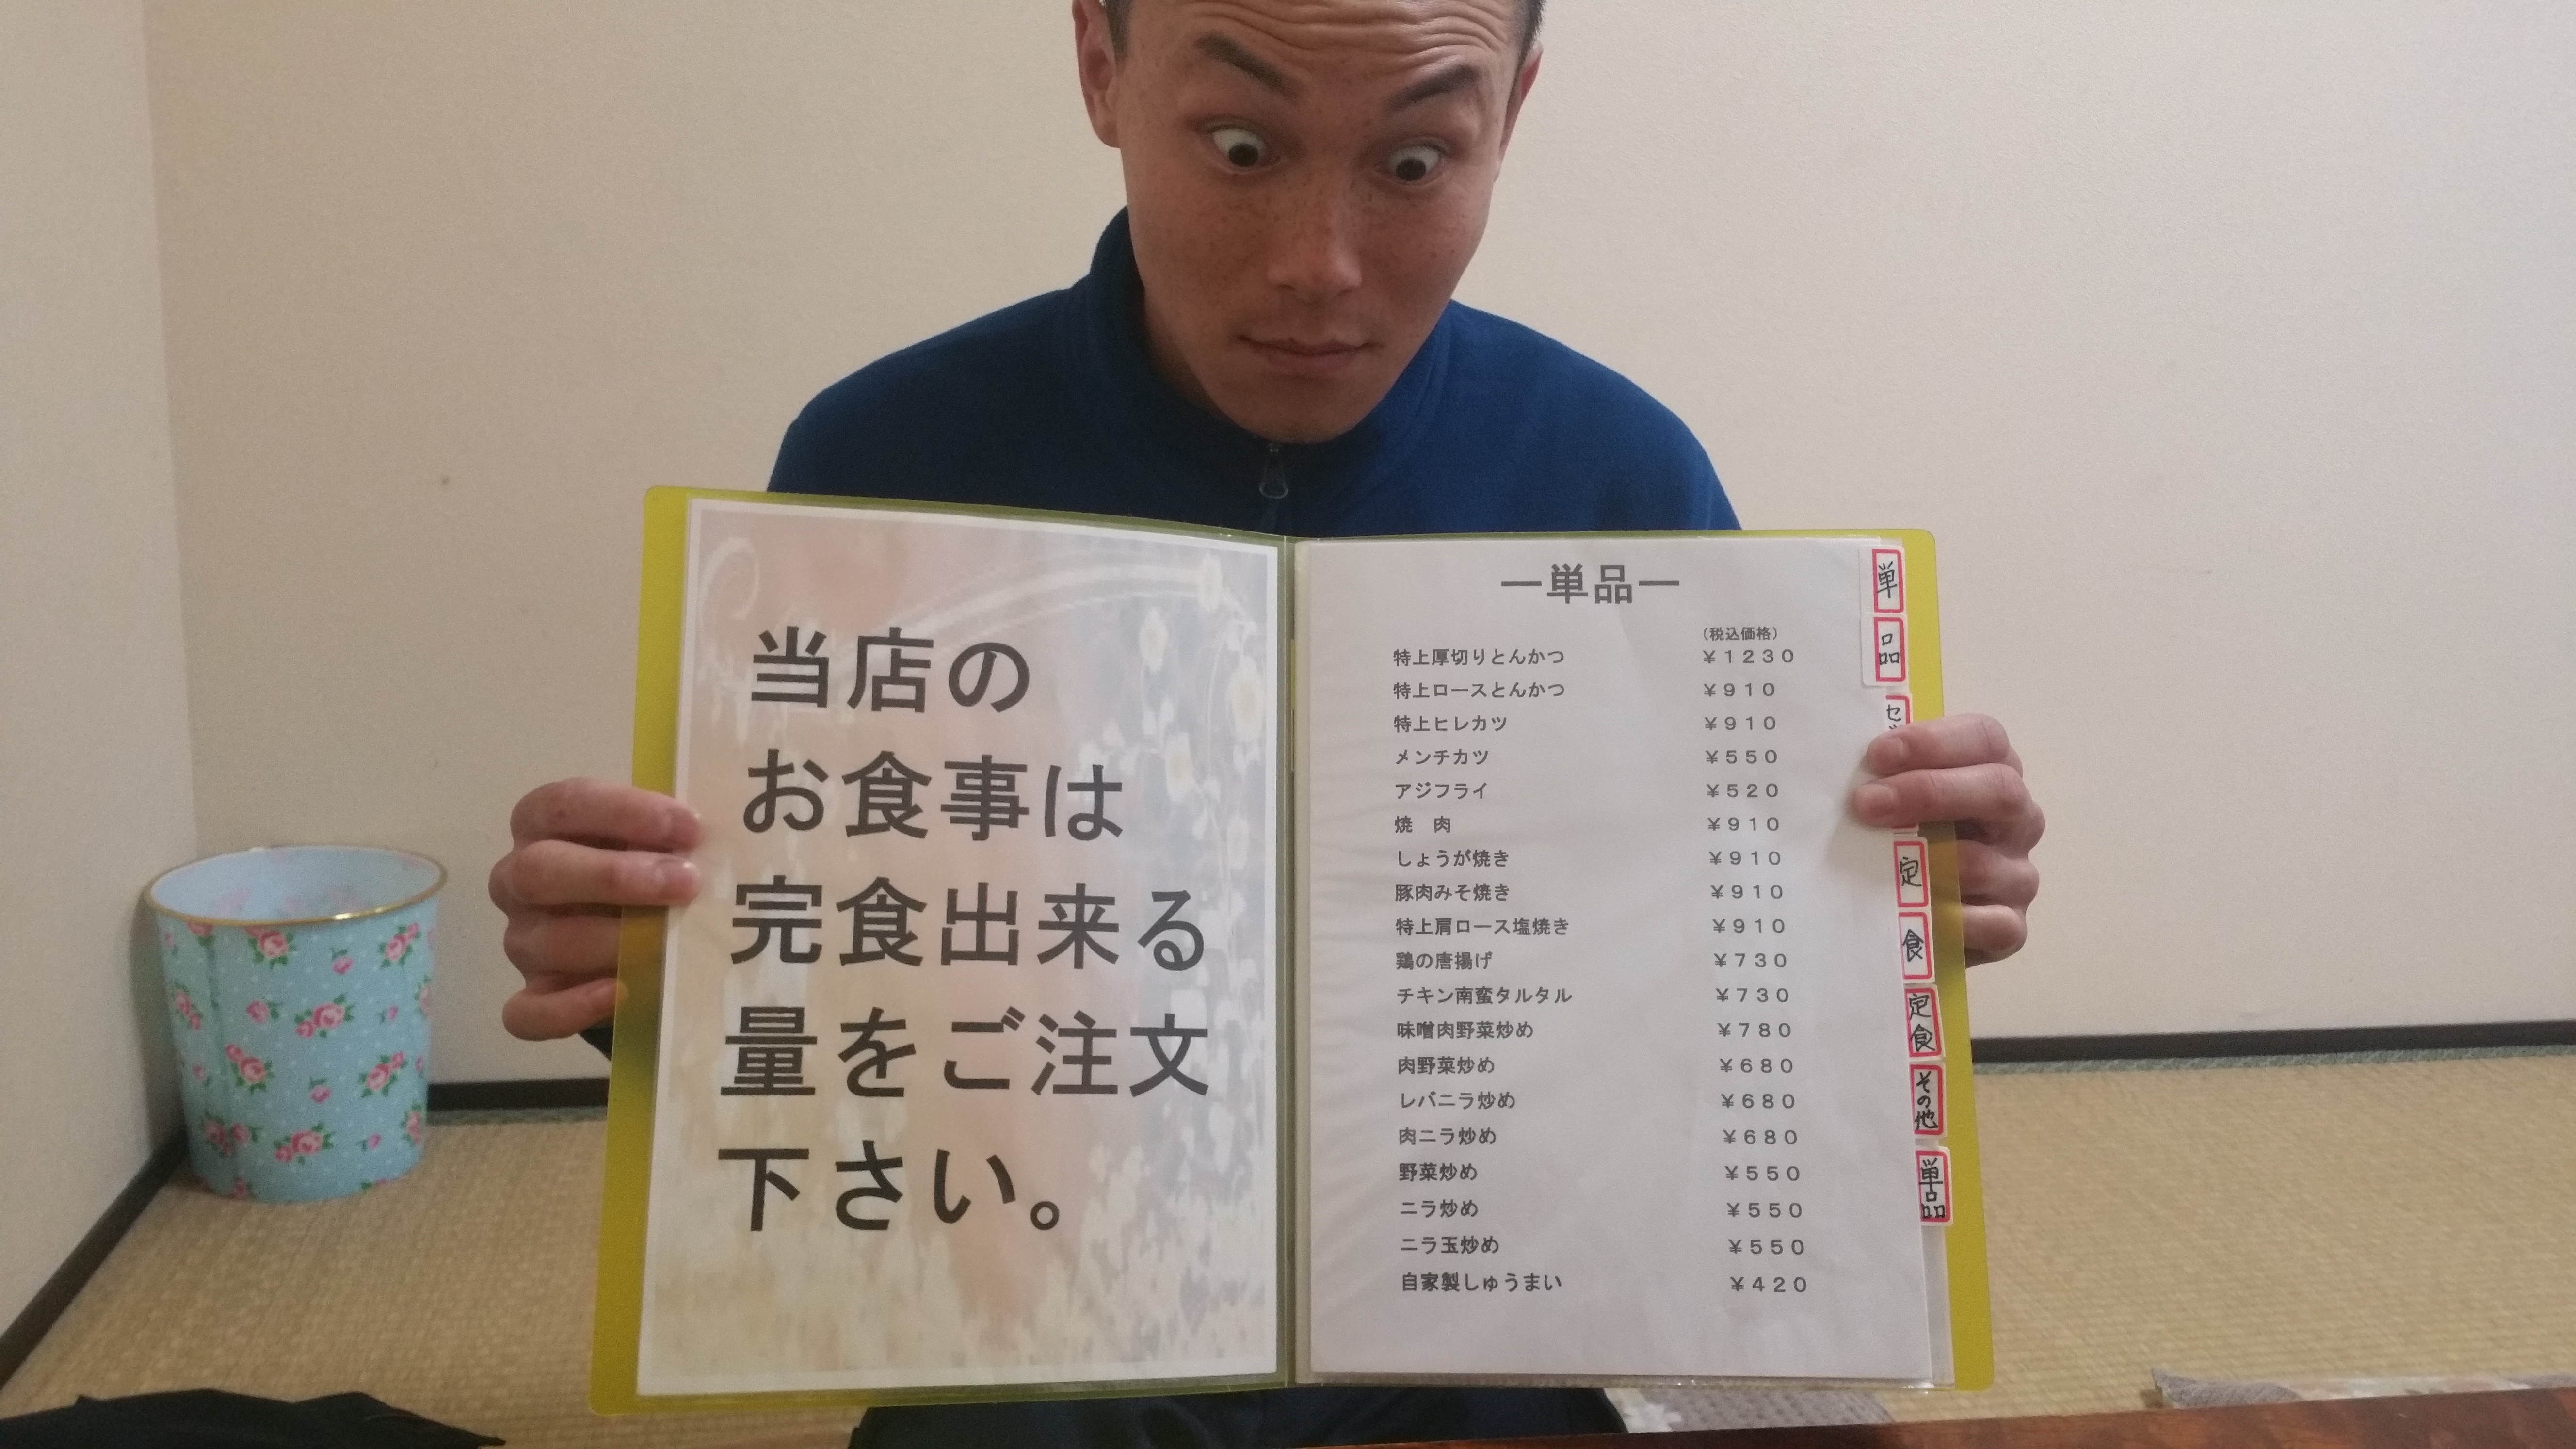 当店の
お食事は
完食出来る
量をご注文
下さい。
―単品―
（税込価格）
特上厚切りとんかつ ￥１２３０
特上ロースとんかつ ￥９１０
特上ヒレカツ ￥９１０
メンチカツ ￥５５０
アジフライ ￥５２０
焼　肉 ￥９１０
しょうが焼き ￥９１０
豚肉みそ焼き ￥９１０
特上肩ロース塩焼き ￥９１０
鶏の唐揚げ ￥７３０
チキン南蛮タルタル ￥７３０
味噌肉野菜炒め ￥７８０
肉野菜炒め ￥６８０
レバニラ炒め ￥６８０
肉ニラ炒め ￥６８０
野菜炒め ￥５５０
ニラ炒め ￥５５０
ニラ玉炒め ￥５５０
自家製しゅうまい ￥４２０
単
品
定
食
定食
その他
単品